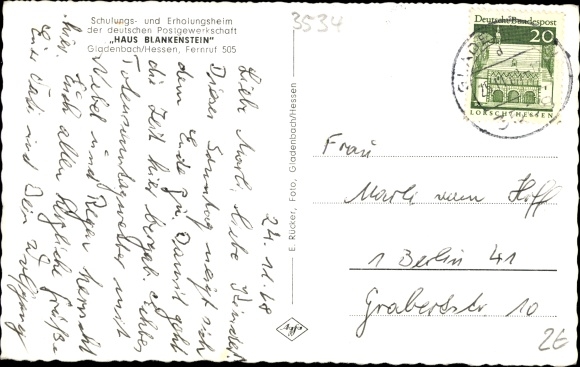 3534
Schulungs- und Erholungsheim
der deutschen Postgewerkschaft
„HAUS BLANKENSTEIN"
Gladenbach/Hessen, Fernruf 505
24.11.68
Liebe Marli, liebe Kinder!
Dieser Sonntag neigt sich
dem Ende zu. Damit geht
die Zeit hier bergab. Echtes
Totensonntagswetter mit
Nebel und Regen herrscht
hier. Euch allen herzliche Grüße
Euer Vati und Dein Wolfgang
E. Rücker, Foto, Gladenbach/Hessen
Agfa
Deutsche Bundespost
20
LORSCH/HESSEN
Frau
Marli vam Hoff
1 Berlin 41
Grabertstr 10
2E